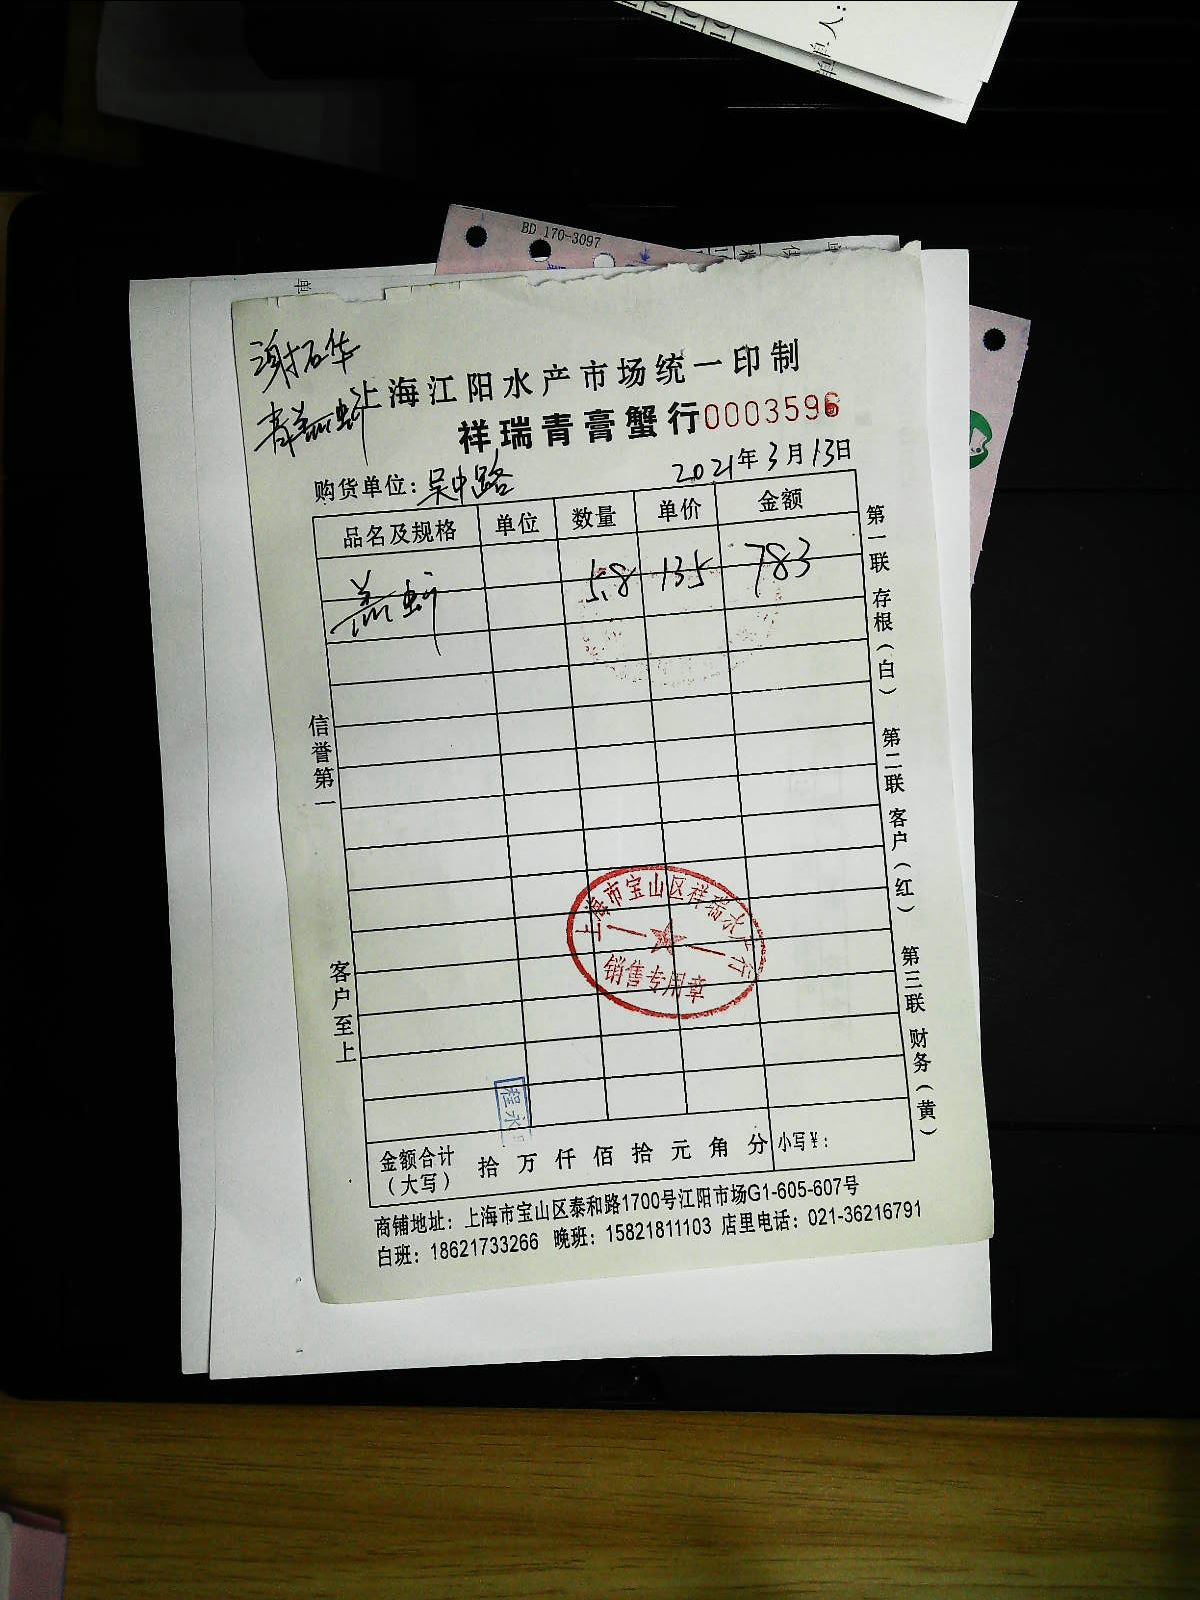 BD 170-3097
单人：
上海江阳水产市场统一印制
祥瑞青膏蟹行0003596
购货单位：吴中路
2021年3月13日
品名及规格 单位 数量 单价 金额
5.8 135 783
信誉第一
客户至上
第一联 存根（白）
第二联 客户（红）
第三联 财务（黄）
上海市宝山区祥瑞水产行
销售专用章
程永
金额合计（大写） 拾 万 仟 佰 拾 元 角 分 小写￥：
商铺地址：上海市宝山区泰和路1700号江阳市场G1-605-607号
白班：18621733266 晚班：15821811103 店里电话：021-36216791